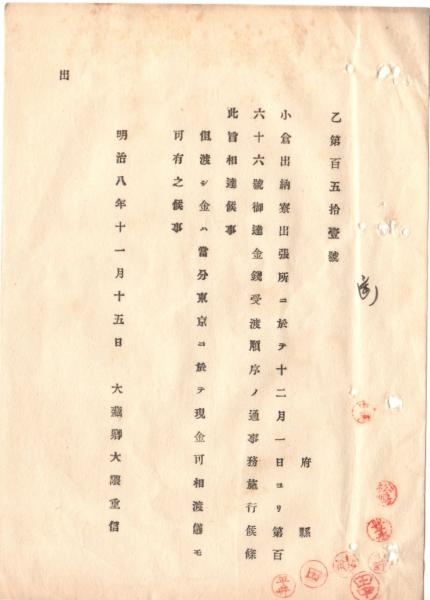 乙第百五拾壹號
府縣
小倉出納寮出張所ニ於テ十二月一日ヨリ第百
六十六號御達金錢受渡順序ノ通事務施行候條
此旨相達候事
但渡シ金ハ當分東京ニ於テ現金可相渡儀モ
可有之候事
明治八年十一月十五日 大藏卿大隈重信
出